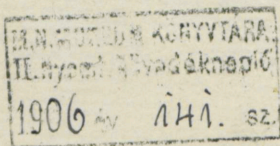 M.N.MUZEUM KÖNYVTARA
II.nyomt. növedéknapló
1906 év 141. sz.